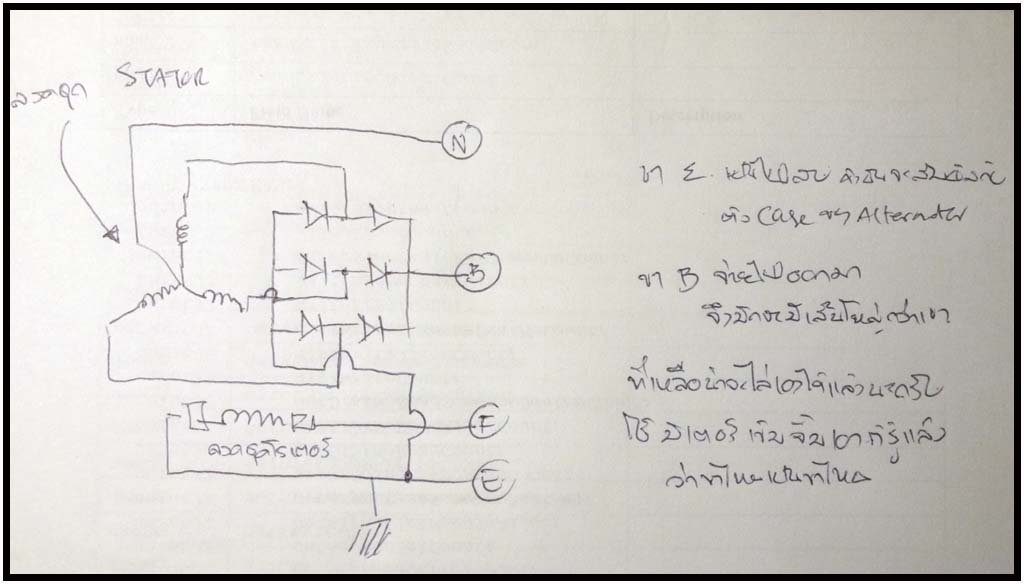 STATOR
ลวดชุด
N
B
F
E
ลวดชุดโรเตอร์
ขา E. เป็นไฟลบ ส่วนจะสัมผัสกับ
ตัว Case ของ Alternator
ขา B จ่ายไฟออกมา
จึงมักจะมีเส้นใหญ่กว่าเขา
ที่เหลือน่าจะไล่เอาได้แล้วนะครับ
ใช้ มิเตอร์ เข็มจิ้มเอาก็รู้แล้ว
ว่าขาไหนเป็นขาไหน